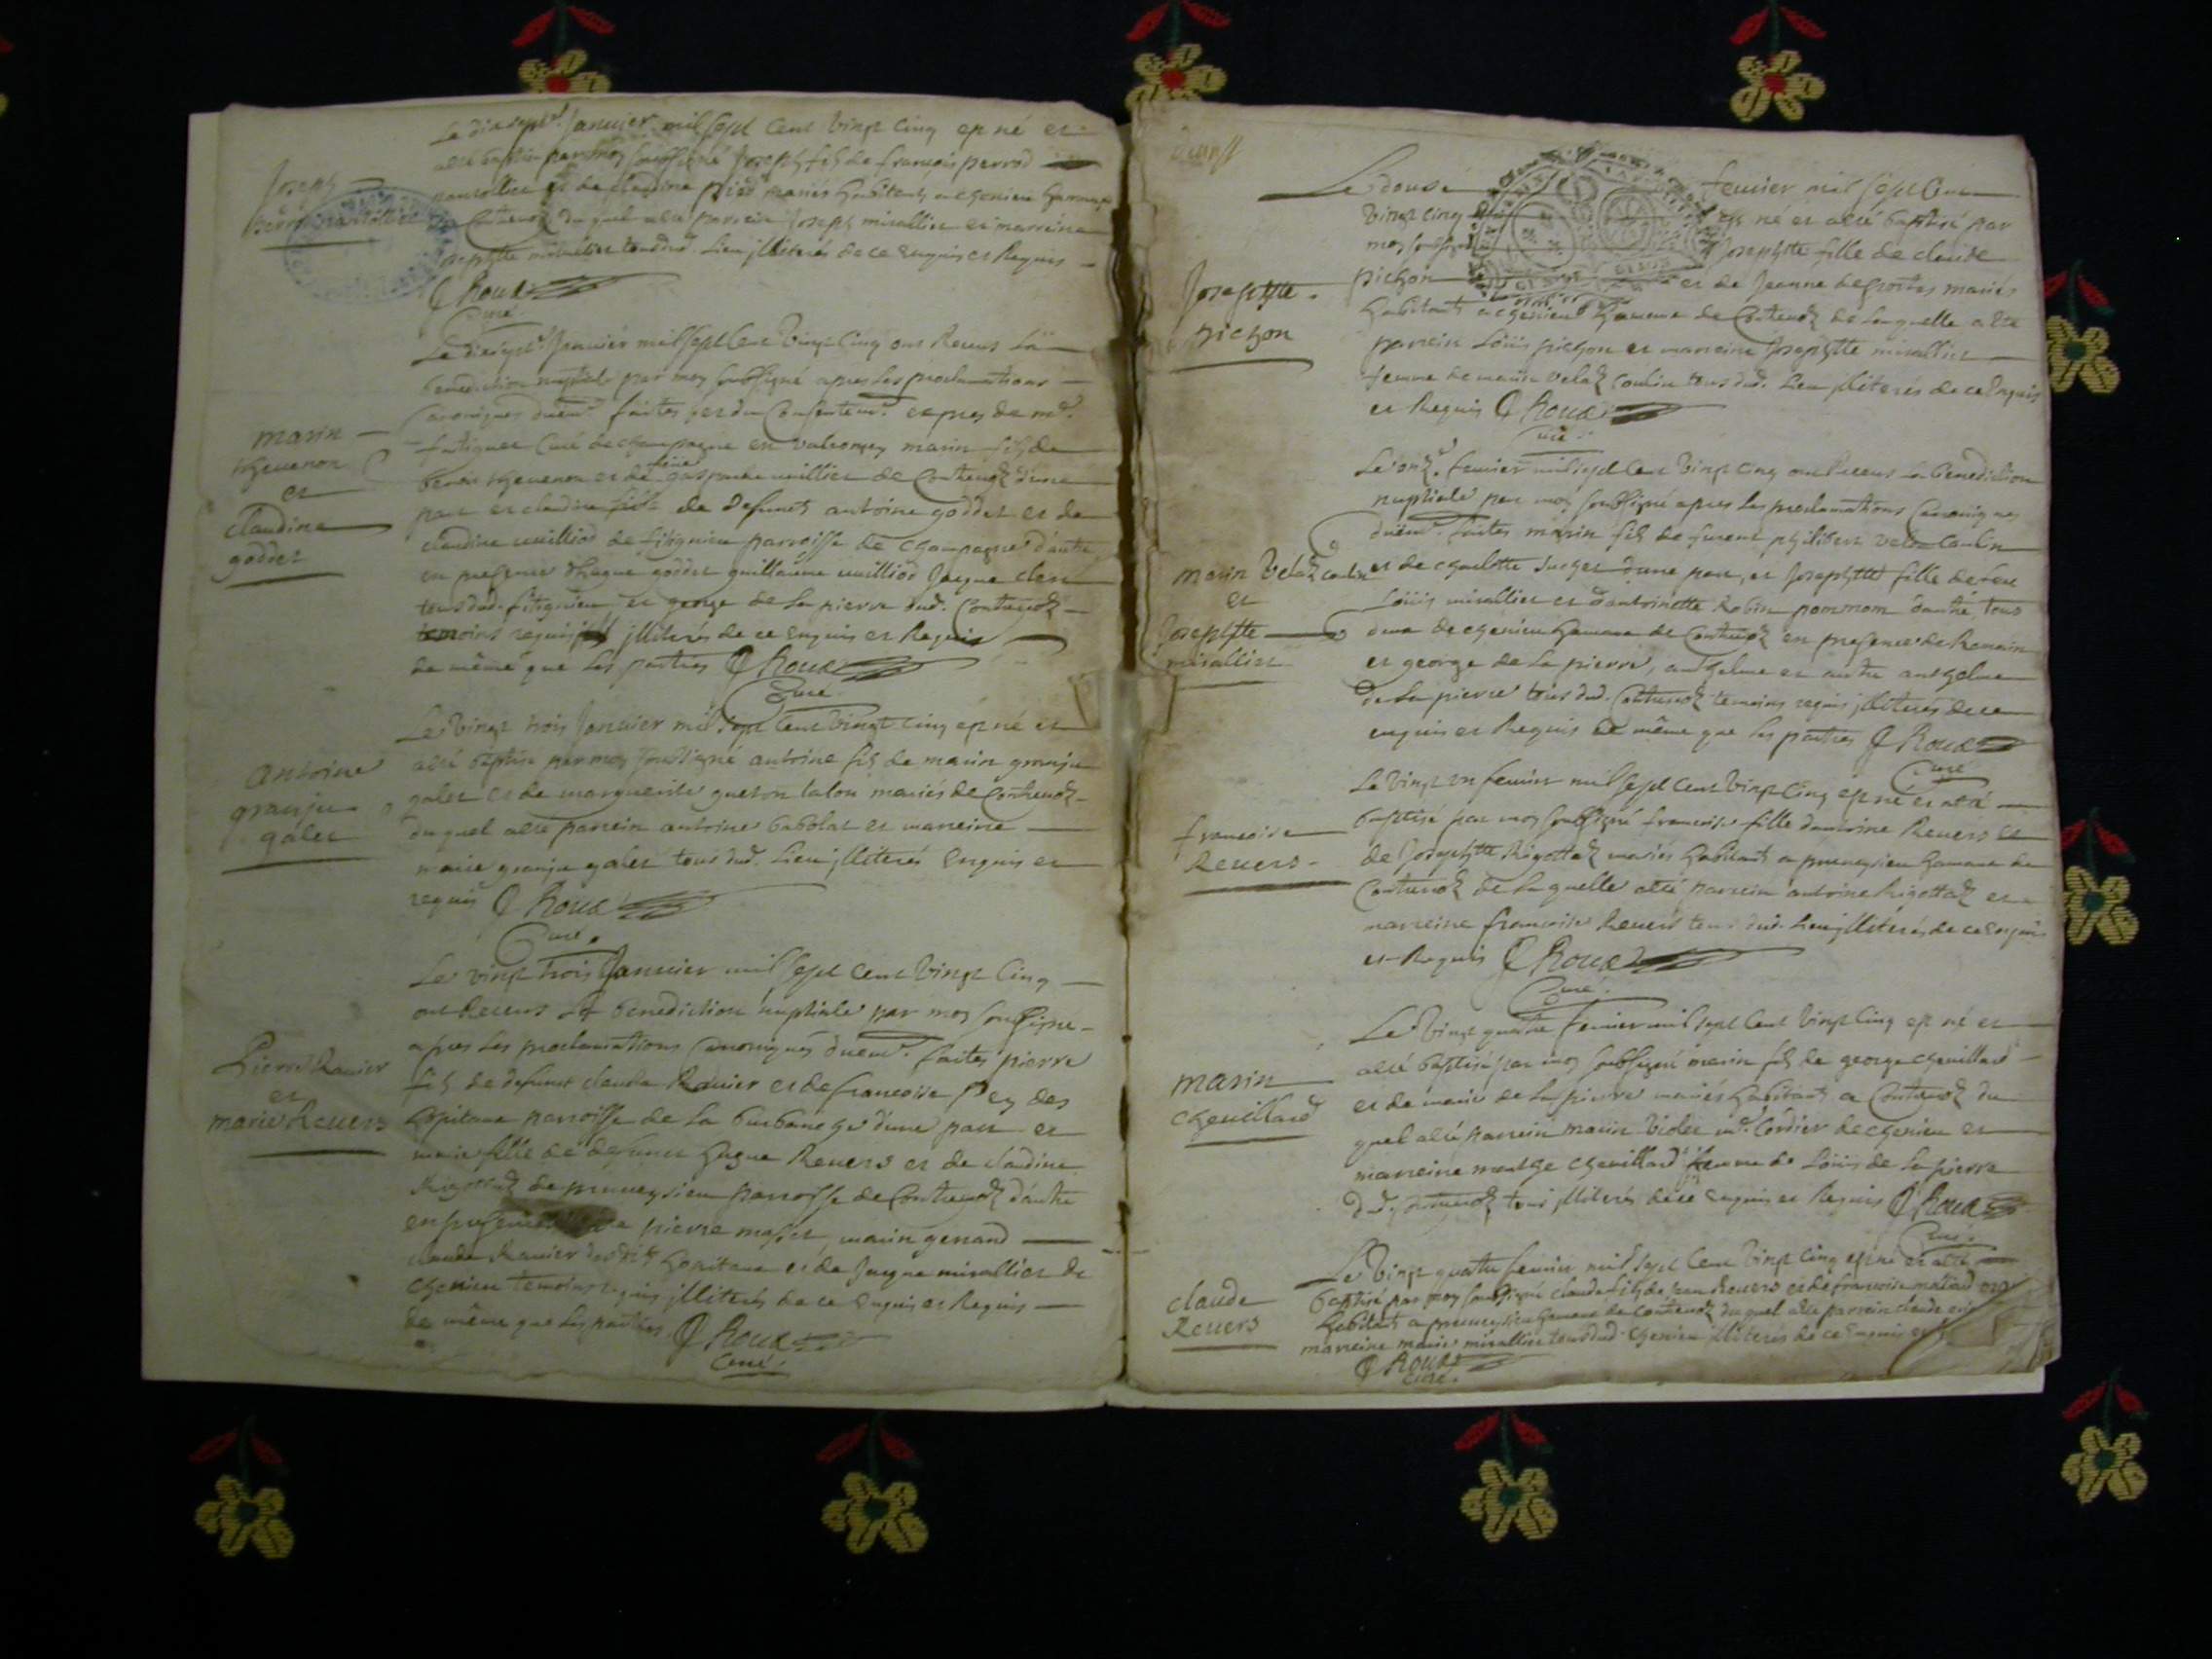 Le dixsept.e Janvier mil sept cent vingt cinq est né et
esté baptisé par moy soubsigné Joseph fils de françois perrod
nantollier et de claudine mariés habitants a chenieu hameau
Contrevoz du quel esté parrein Joseph mirallier et marreine
Josephtte mirallier tous dud. Lieu jlliterés de ce Enquis et Requis
Joseph
perrod nantollier
Roux
Curé
Le dixsept.e Janvier mil sept Cent Vingt Cinq ont Receus La
benediction nuptiale par moy soubsigné apres Les proclamations
canoniques duem.t faites et du Consentem.t expres de m.r
Curé de champagne en valromey marin fils de
thevenon et de feüe gasparde millier de Contrevoz d'une
part et claudine fille de defunct antoine goddet et de
claudine milliod de fitignieu parroisse de champagne d'autre
en presence d'hugue goddet guillaume milliod Jacque
tous dud. fitignieu, et george de La pierre dud. Contrevoz
temoins requis jlliterés de ce Enquis et Requis
de même que Les parties Roux
Curé
marin
thevenon
et
claudine
goddet
Le Vingt trois Janvier mil sept Cent Vingt Cinq est né et
esté baptisé par moy soubsigné antoine fils de marin granju
galet et de marguerite mariés de Contrevoz
du quel esté parrein antoine et marreine
marie granju galet tous dud. Lieu jlliterés Enquis et
requis Roux
Curé
antoine
granju
galet
Le vingt trois Janvier mil sept Cent Vingt Cinq
ont Receus La benediction nuptiale par moy soubsigné
apres Les proclamations Canoniques duem.t faites pierre
fils de defunct claude Ravier et de francoise des
hopitaux parroisse de La burbanche d'une part et
marie fille de defunct hugue Revers et de claudine
Rigottaz de pruneysieu parroisse de Contrevoz d'autre
en presence de pierre masset, marin genand
claude Ravier et de Jacque mirallier de
Chenieu temoins requis jlliterés de ce Enquis et Requis
de même que Les parties Roux
Curé
Pierre Ravier
et
marie Revers
Le douse fevrier mil sept Cent
Vingt cinq est né et esté baptisé par
moy soubsigné Josephtte fille de claude
pichon et de Jeanne desportes mariés
habitants a chenieu hameau de Contrevoz de Laquelle esté
parrein Loüis pichon et marreine Josephtte mirallier
femme de marin Velaz Coulin tous dud. Lieu jlliterés de ce Enquis
et Requis Roux
Curé
Josephtte
pichon
Le onz.e fevrier mil sept Cent Vingt Cinq ont Receus La benediction
nuptiale par moy soubsigné apres Les proclamations Canoniques
duem.t faites marin fils de philibert Velaz Coulin
et de charlotte d'une part, et Josephtte fille de feu
Loüis mirallier et d'antoinette Robin pommom d'autre, tous
deux de chenieu hameau de Contrevoz en presence de Romain
et george de La pierre, anthelme et autre anthelme
de La pierre tous dud. Contrevoz temoins requis jlliterés de ce
enquis et Requis de même que Les parties Roux
Curé
marin Velaz Coulin
et
Josephtte
mirallier
Le Vingt un fevrier mil sept Cent Vingt Cinq est né et esté
baptisé par moy soubsigné francoise fille d'antoine Revers et
de Josephtte Rigottaz mariés habitants a pruneysieu hameau de
Contrevoz de Laquelle esté parrein antoine Rigottaz et
marreine francoise Revers tous dud. Lieu jlliterés de ce Enquis
et Requis Roux
Curé
francoise
Revers
Le Vingt quatre fevrier mil sept Cent Vingt Cinq est né et
esté baptisé par moy soubsigné marin fils de george chevillard
et de marie de La pierre mariés habitants a Contrevoz du
quel esté parrein marin Violet m.e Cordier de chenieu et
marreine chevillard femme de Loüis de La pierre
dud. Contrevoz tous jlliterés de ce Enquis et Requis Roux
Curé
marin
chevillard
Le Vingt quatre fevrier mil sept Cent Vingt Cinq est né et esté
baptisé par moy soubsigné claude fils de Jean Revers et de francoise
habitants a pruneysieu hameau de Contrevoz du quel esté parrein claude
marreine marie mirallier tous dud. chenieu jlliterés de ce Enquis et
Roux
Curé
claude
Revers